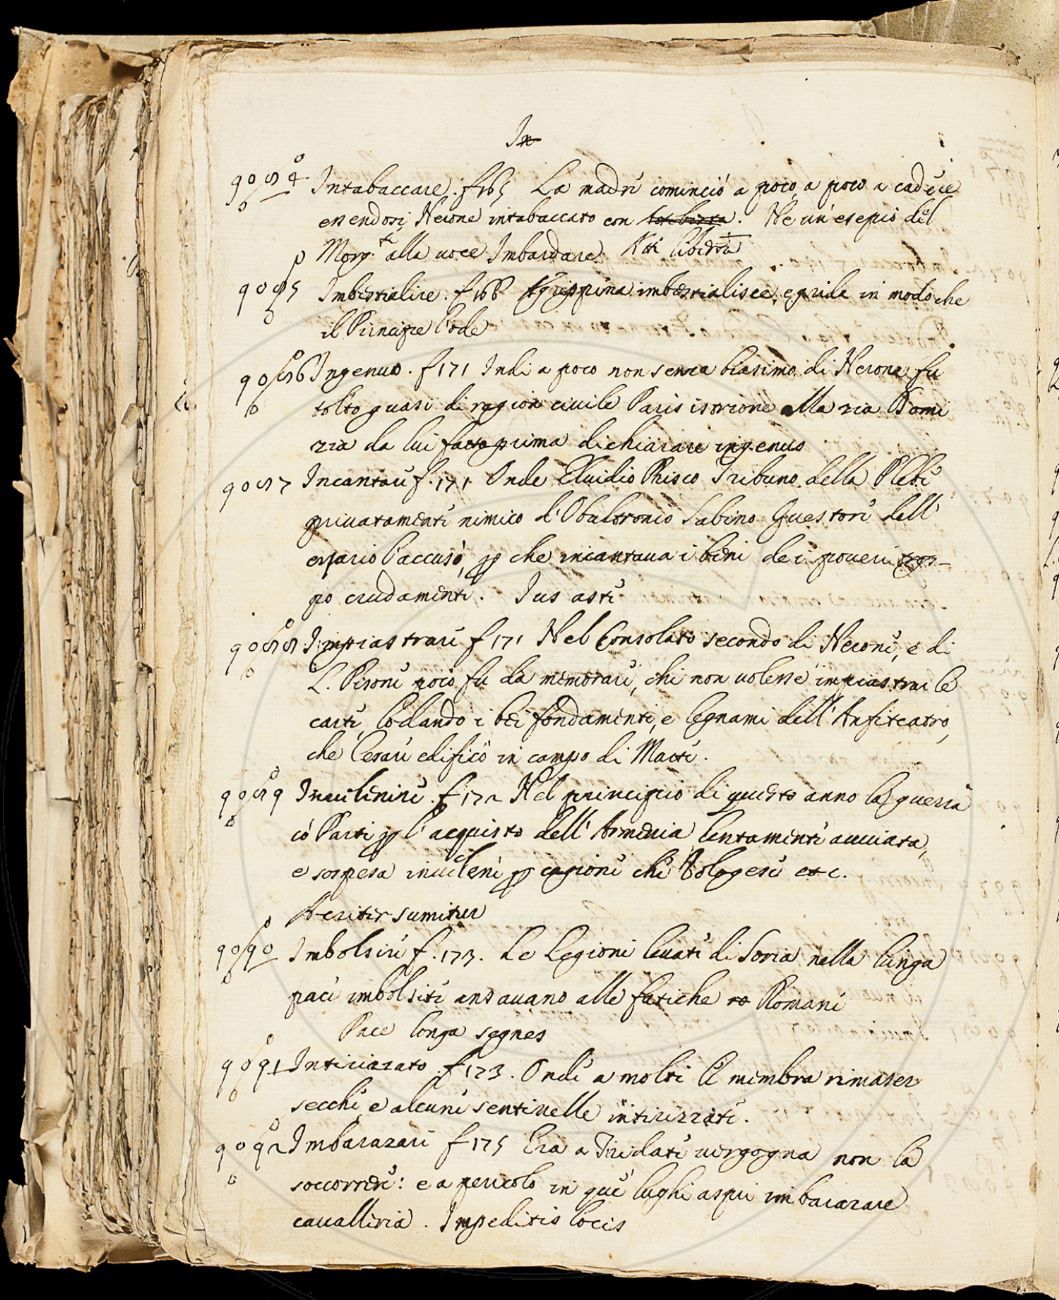 In
9084 Intabaccare. f 165 La madre cominciò a poco a poco a cadere
essendosi Nerone intabaccato con . Ne un'esepio del
Morg.te alla voce Imbardare liberta
9085 Imbestialire. f 166 Agrippina imbestialisce, e grida in modo che
il Principe l'ode
9086 Ingenuo. f 171 Indi a poco non senza biasimo di Nerone fu
tolto quasi di ragion civile Paris istrione alla zia Domi
zia da lui fatto prima dichiarare ingenuo
9087 Incantare f. 171 Onde Elvidio Prisco Tribuno della Plebe
privatamente nimico d'Obultronio Sabino Questore dell
erario l'accusò, che incantava i beni dei poveri
po crudamente. Ius aste
9088 Impiastrare f 171 Nel Consolato secondo di Nerone, e di
L. Pisone poco fu da memorare, chi non volesse impiastrar le
carte, lodando i bei fondamenti, e legnami dell'Anfiteatro,
che Cesare edificò in campo di Marte.
9089 Invelenire. f 172 Nel principio di questo anno la guerra
cò Parti l'acquisto dell'Armenia lentamente avviata,
e sospesa invelenì cagione che Vologese etc.
Acriter sumitur
9090 Imbolsire f. 173. Le Legioni levate di Soria nella lunga
pace imbolsite andavano alle fatiche Romane
Pace longa segnes
9091 Intirizzato. f 173. Onde a molti le membra rimaser
secche, e alcune sentinelle intirizzate.
9092 Imbarazare f 175 Era a Tiridate vergogna non la
soccorrere: e a pericolo in que' lughi aspri imbarazare
cavalleria. Impeditis locis